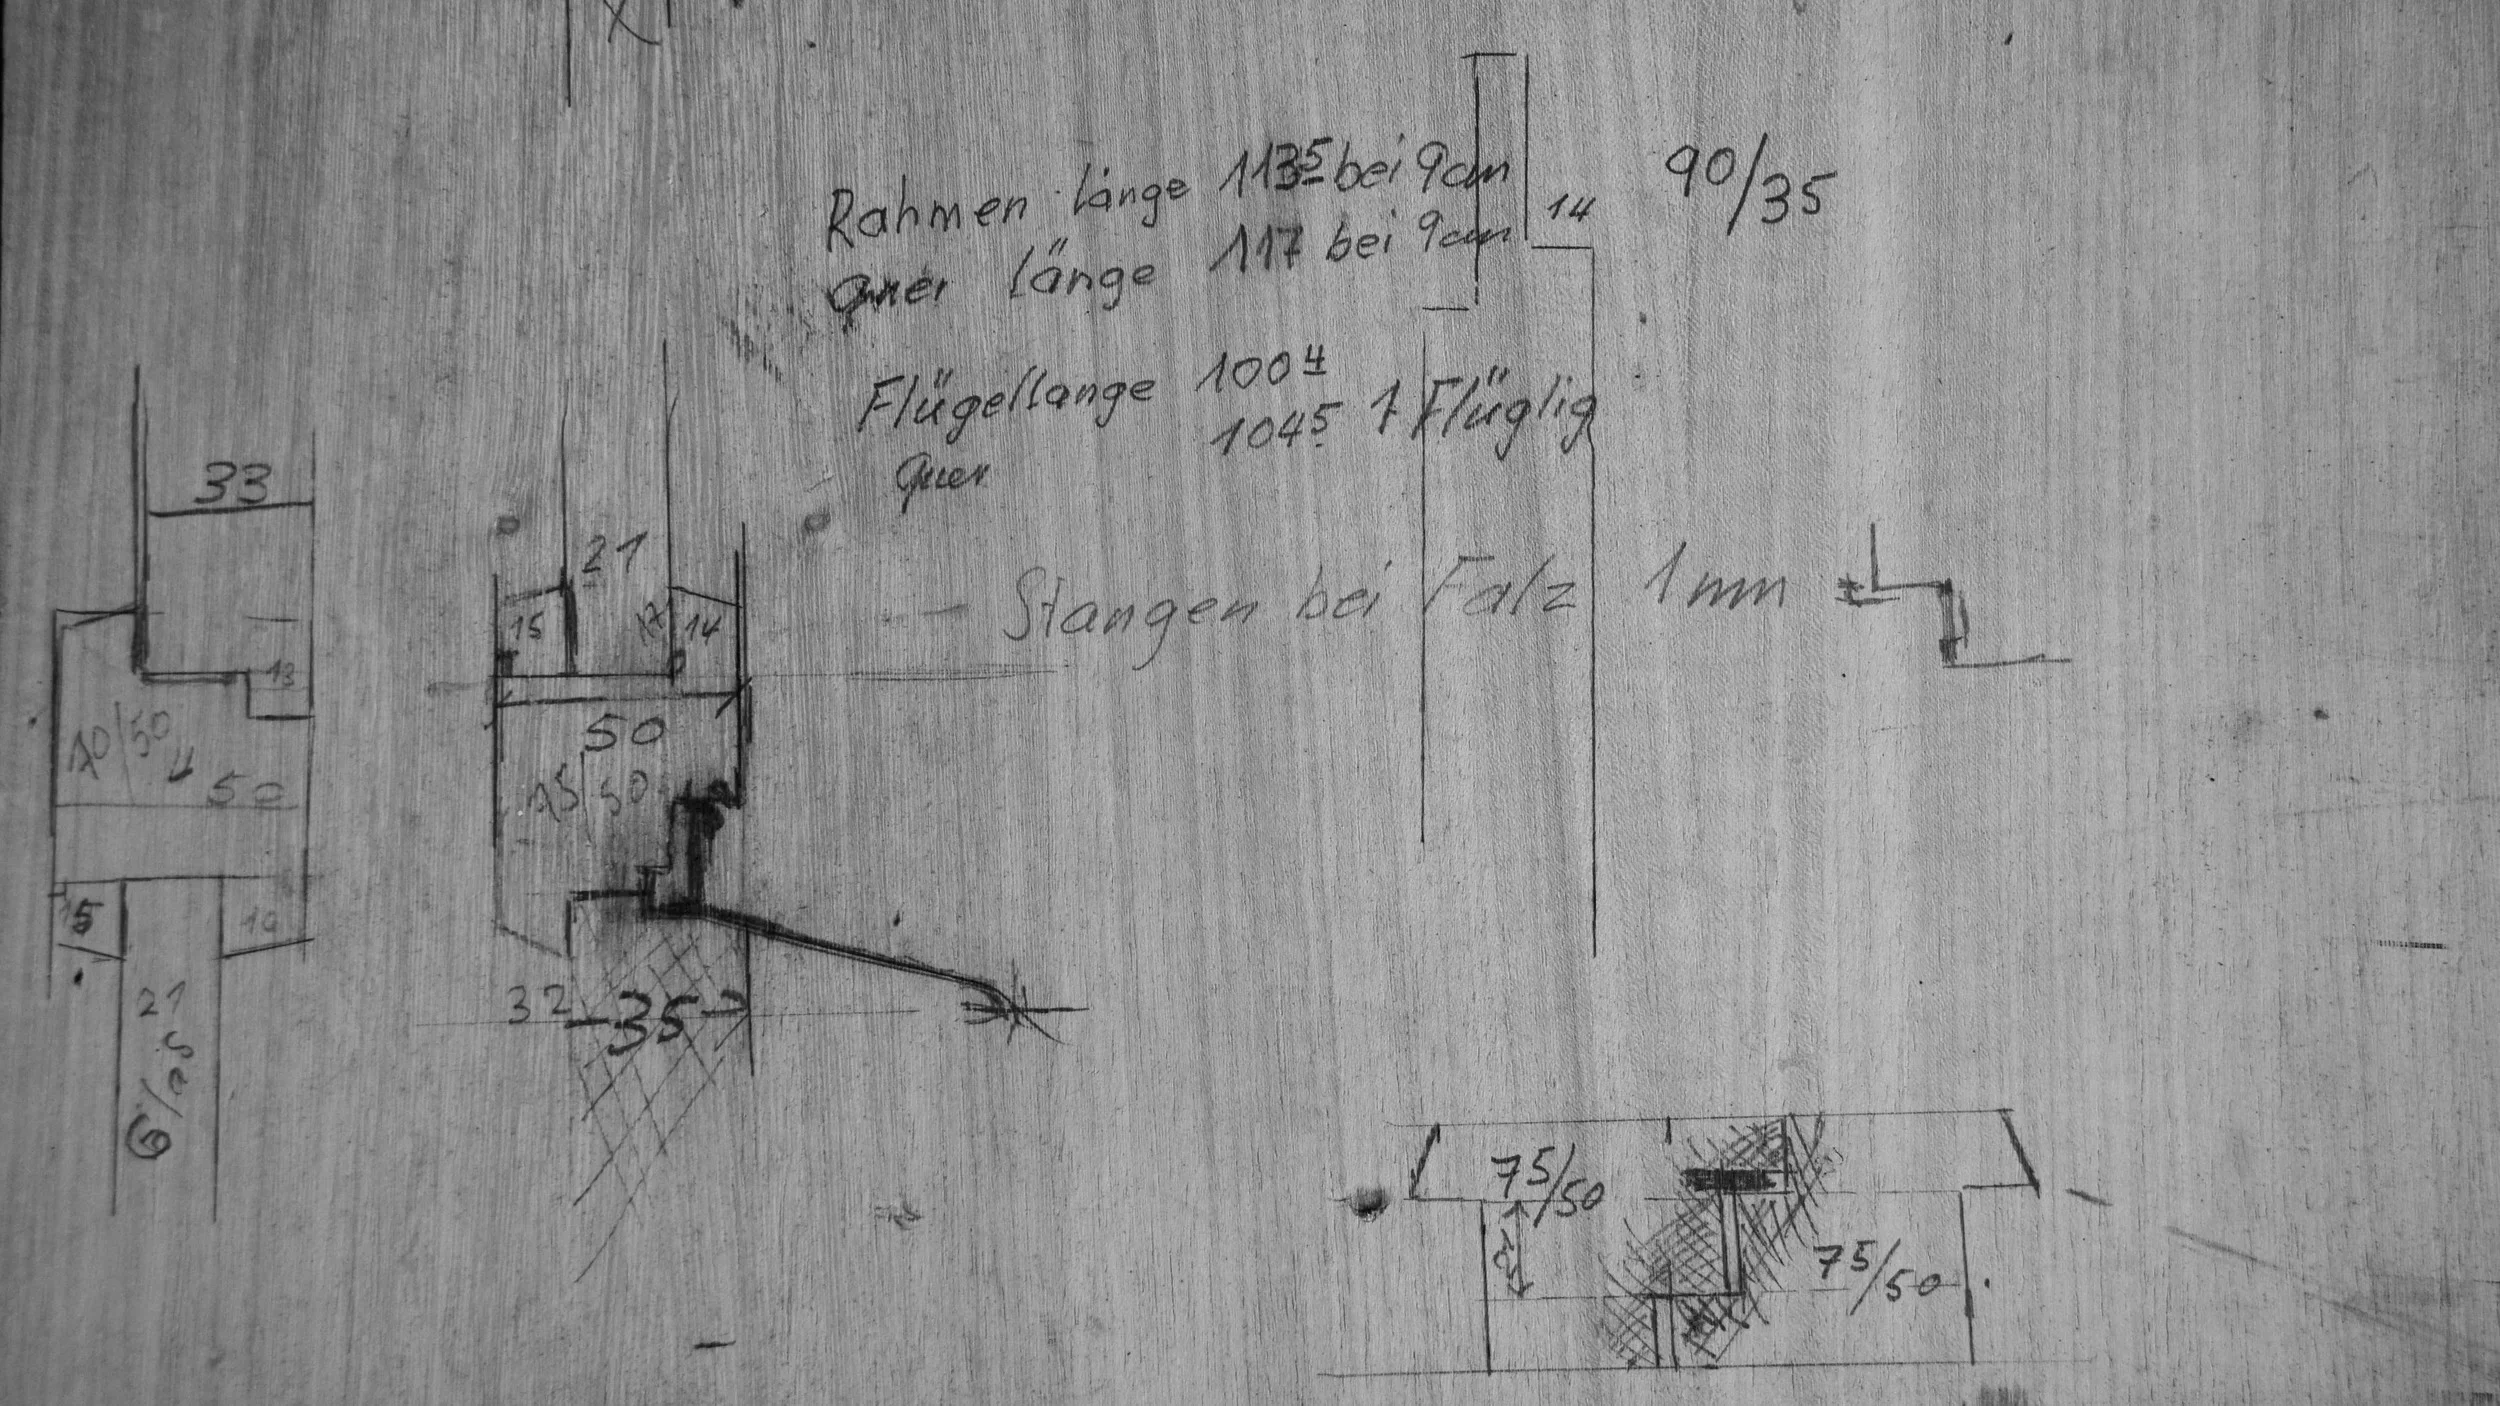 Rahmen länge 113⁵ bei 9cm
Quer länge 117 bei 9cm
14
90/35
Flügellänge 100⁴
104⁵ 1 Flüglig
Quer
Stangen bei Falz 1mm
33
13
50
15
21
21
15
14
50
32
35
75/50
75/50